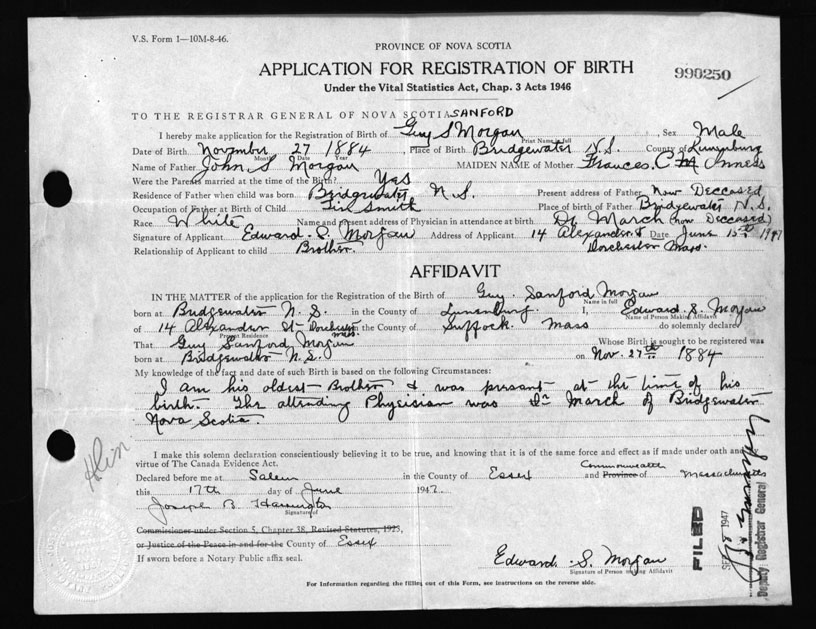 V.S. Form 1—10M-8-46.
PROVINCE OF NOVA SCOTIA
APPLICATION FOR REGISTRATION OF BIRTH
990250
Under the Vital Statistics Act, Chap. 3 Acts 1946
TO THE REGISTRAR GENERAL OF NOVA SCOTIA SANFORD
I hereby make application for the Registration of Birth of Guy S Morgan, Sex Male
Print Name in full
Date of Birth November 27 1884, Place of Birth Bridgewater N.S. County of Lunenburg
Month Date Year
Name of Father John S Morgan MAIDEN NAME of Mother Frances. C Inness
Were the Parents married at the time of the Birth? Yes
Residence of Father when child was born Bridgewater N.S. Present address of Father Now Deceased
Occupation of Father at Birth of Child Tin Smith Place of birth of Father Bridgewater N.S.
Race White Name and present address of Physician in attendance at birth Dr March (now Deceased)
Signature of Applicant Edward. S. Morgan Address of Applicant 14 Alexander St Date June 15th 1947
Relationship of Applicant to child Brother. Dorchester Mass.
AFFIDAVIT
IN THE MATTER of the application for the Registration of the Birth of Guy. Sanford Morgan
Name in full
born at Bridgewater N.S. in the County of Lunenburg. I, Edward S. Morgan
Name of Person Making Affidavit
of 14 Alexander St- Dorchester Mass. in the County of Suffock. Mass do solemnly declare
Present Residence
That Guy Sanford Morgan Whose Birth is sought to be registered was
born at Bridgewater N.S. on Nov. 27th 1884
My knowledge of the fact and date of such Birth is based on the following Circumstances:
I am his oldest Brother & was persant at the time of his
birth. The attending Physician was Dr March of Bridgewater
Nova Scotia.
I make this solemn declaration conscientiously believing it to be true, and knowing that it is of the same force and effect as if made under oath and by
virtue of The Canada Evidence Act.
Commonwealth
Declared before me at Salem in the County of Essex and Province of Massachusetts
this 17th day of June 1947.
Joseph B. Harrington
Signature of
Commissioner under Section 5, Chapter 38, Revised Statutes, 1923,
or Justice of the Peace in and for the County of Essex
If sworn before a Notary Public affix seal.
Edward. S. Morgan
Signature of Person making Affidavit
For Information regarding the filling out of this Form, see instructions on the reverse side.
FILED
1947
Deputy Registrar General